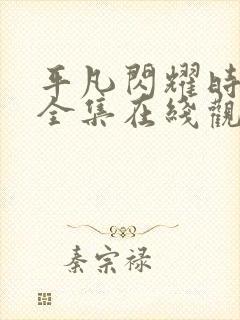 平凡閃耀時
全集在綫觀
秦宗禄